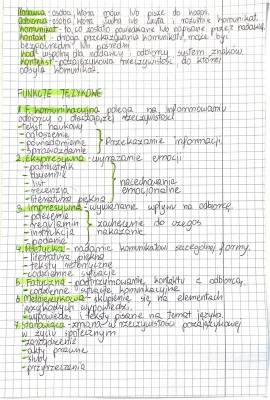 Nadawca - osoba, która mówi lub pisze do kogoś.
Odbiorca - osoba, która słucha lub czyta i rozumie komunikat.
Komunikat - to, co zostało powiedziane lub napisane przez nadawcę.
Kontakt - droga przekazywania komunikatu, może być
bezpośredni lub pośredni.
Kod - wspólny dla nadawcy i odbiorcy system znaków.
Kontekst - pozajęzykowa rzeczywistość, do której
odsyła komunikat.
FUNKCJE JĘZYKOWE
1. F. komunikacyjna polega na informowaniu
odbiorcy o otaczającej rzeczywistości
- tekst naukowy
- ogłoszenie
- powiadomienie
- sprawozdanie
Przekazanie informacji.
2. Ekspresywna - wyrażanie emocji
- pamiętnik
- dziennik
- list
- recenzja
- literatura piękna
nacechowania
emocjonalne
3. Impresywna - wywieranie wpływu na odbiorcę.
- polecenie
- regulamin
- instrukcja
- podanie
zachęcenie do czegoś
nakazanie
4. Poetycka - nadanie komunikatowi szczególnej formy.
- literatura piękna
- teksty retoryczne
- codzienne sytuacje
5. Fatyczna - podtrzymywanie kontaktu z odbiorcą,
- codzienne sytuacje komunikacyjne
6. Metajęzykowa - skupienie się na elementach
językowych wypowiedzi.
- wypowiedzi i teksty pisane na temat języka.
7. Stanowiąca - zmiana w rzeczywistości pozajęzykowej
w życiu społecznym
- zarządzenie
- akty prawne
- śluby
- przyrzeczenia